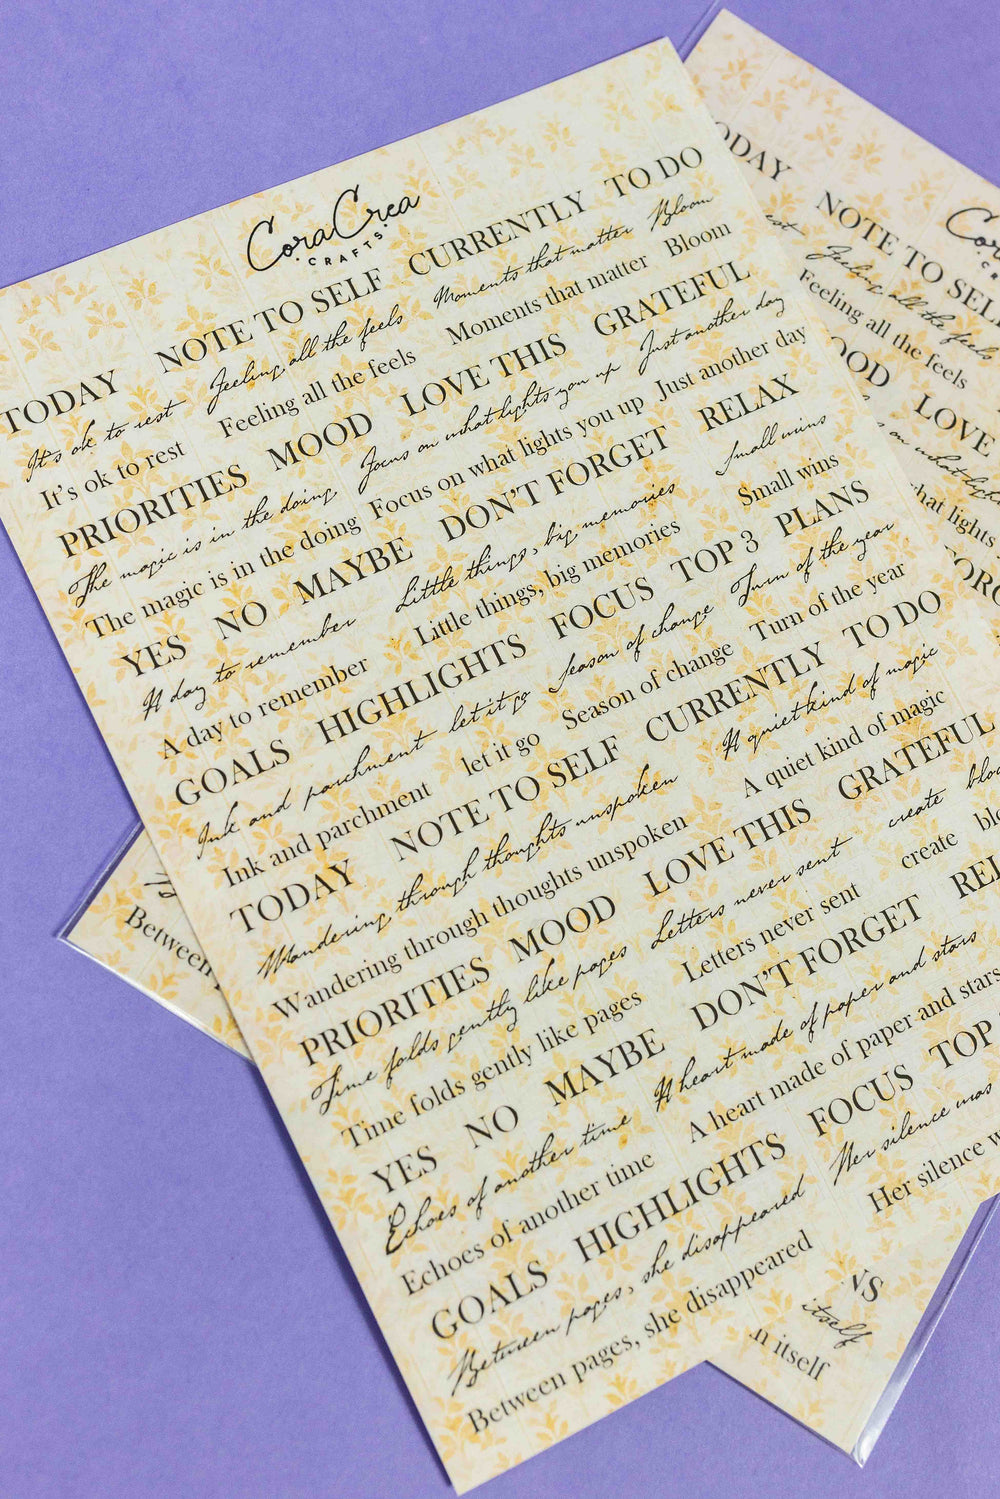 CoraCrea
CRAFTS
TODAY NOTE TO SELF CURRENTLY TO DO
It's ok to rest Feeling all the feels Moments that matter Bloom
It's ok to rest Feeling all the feels Moments that matter Bloom
PRIORITIES MOOD LOVE THIS GRATEFUL
The magic is in the doing Focus on what lights you up Just another day
The magic is in the doing Focus on what lights you up Just another day
YES NO MAYBE DON'T FORGET RELAX
A day to remember Little things, big memories Small wins
A day to remember Little things, big memories Small wins
GOALS HIGHLIGHTS FOCUS TOP 3 PLANS
Ink and parchment let it go Season of change Turn of the year
Ink and parchment let it go Season of change Turn of the year
TODAY NOTE TO SELF CURRENTLY TO DO
Wandering through thoughts unspoken A quiet kind of magic
Wandering through thoughts unspoken A quiet kind of magic
PRIORITIES MOOD LOVE THIS GRATEFUL
Time folds gently like pages Letters never sent create
Time folds gently like pages Letters never sent create
YES NO MAYBE DON'T FORGET
Echoes of another time A heart made of paper and stars
Echoes of another time A heart made of paper and stars
GOALS HIGHLIGHTS FOCUS TOP
Between pages, she disappeared Her silence was
Between pages, she disappeared Her silence
NOTE TO SELF
Feeling all the feels
Feeling all the feels
LOVE
lights
Between
itself
itself